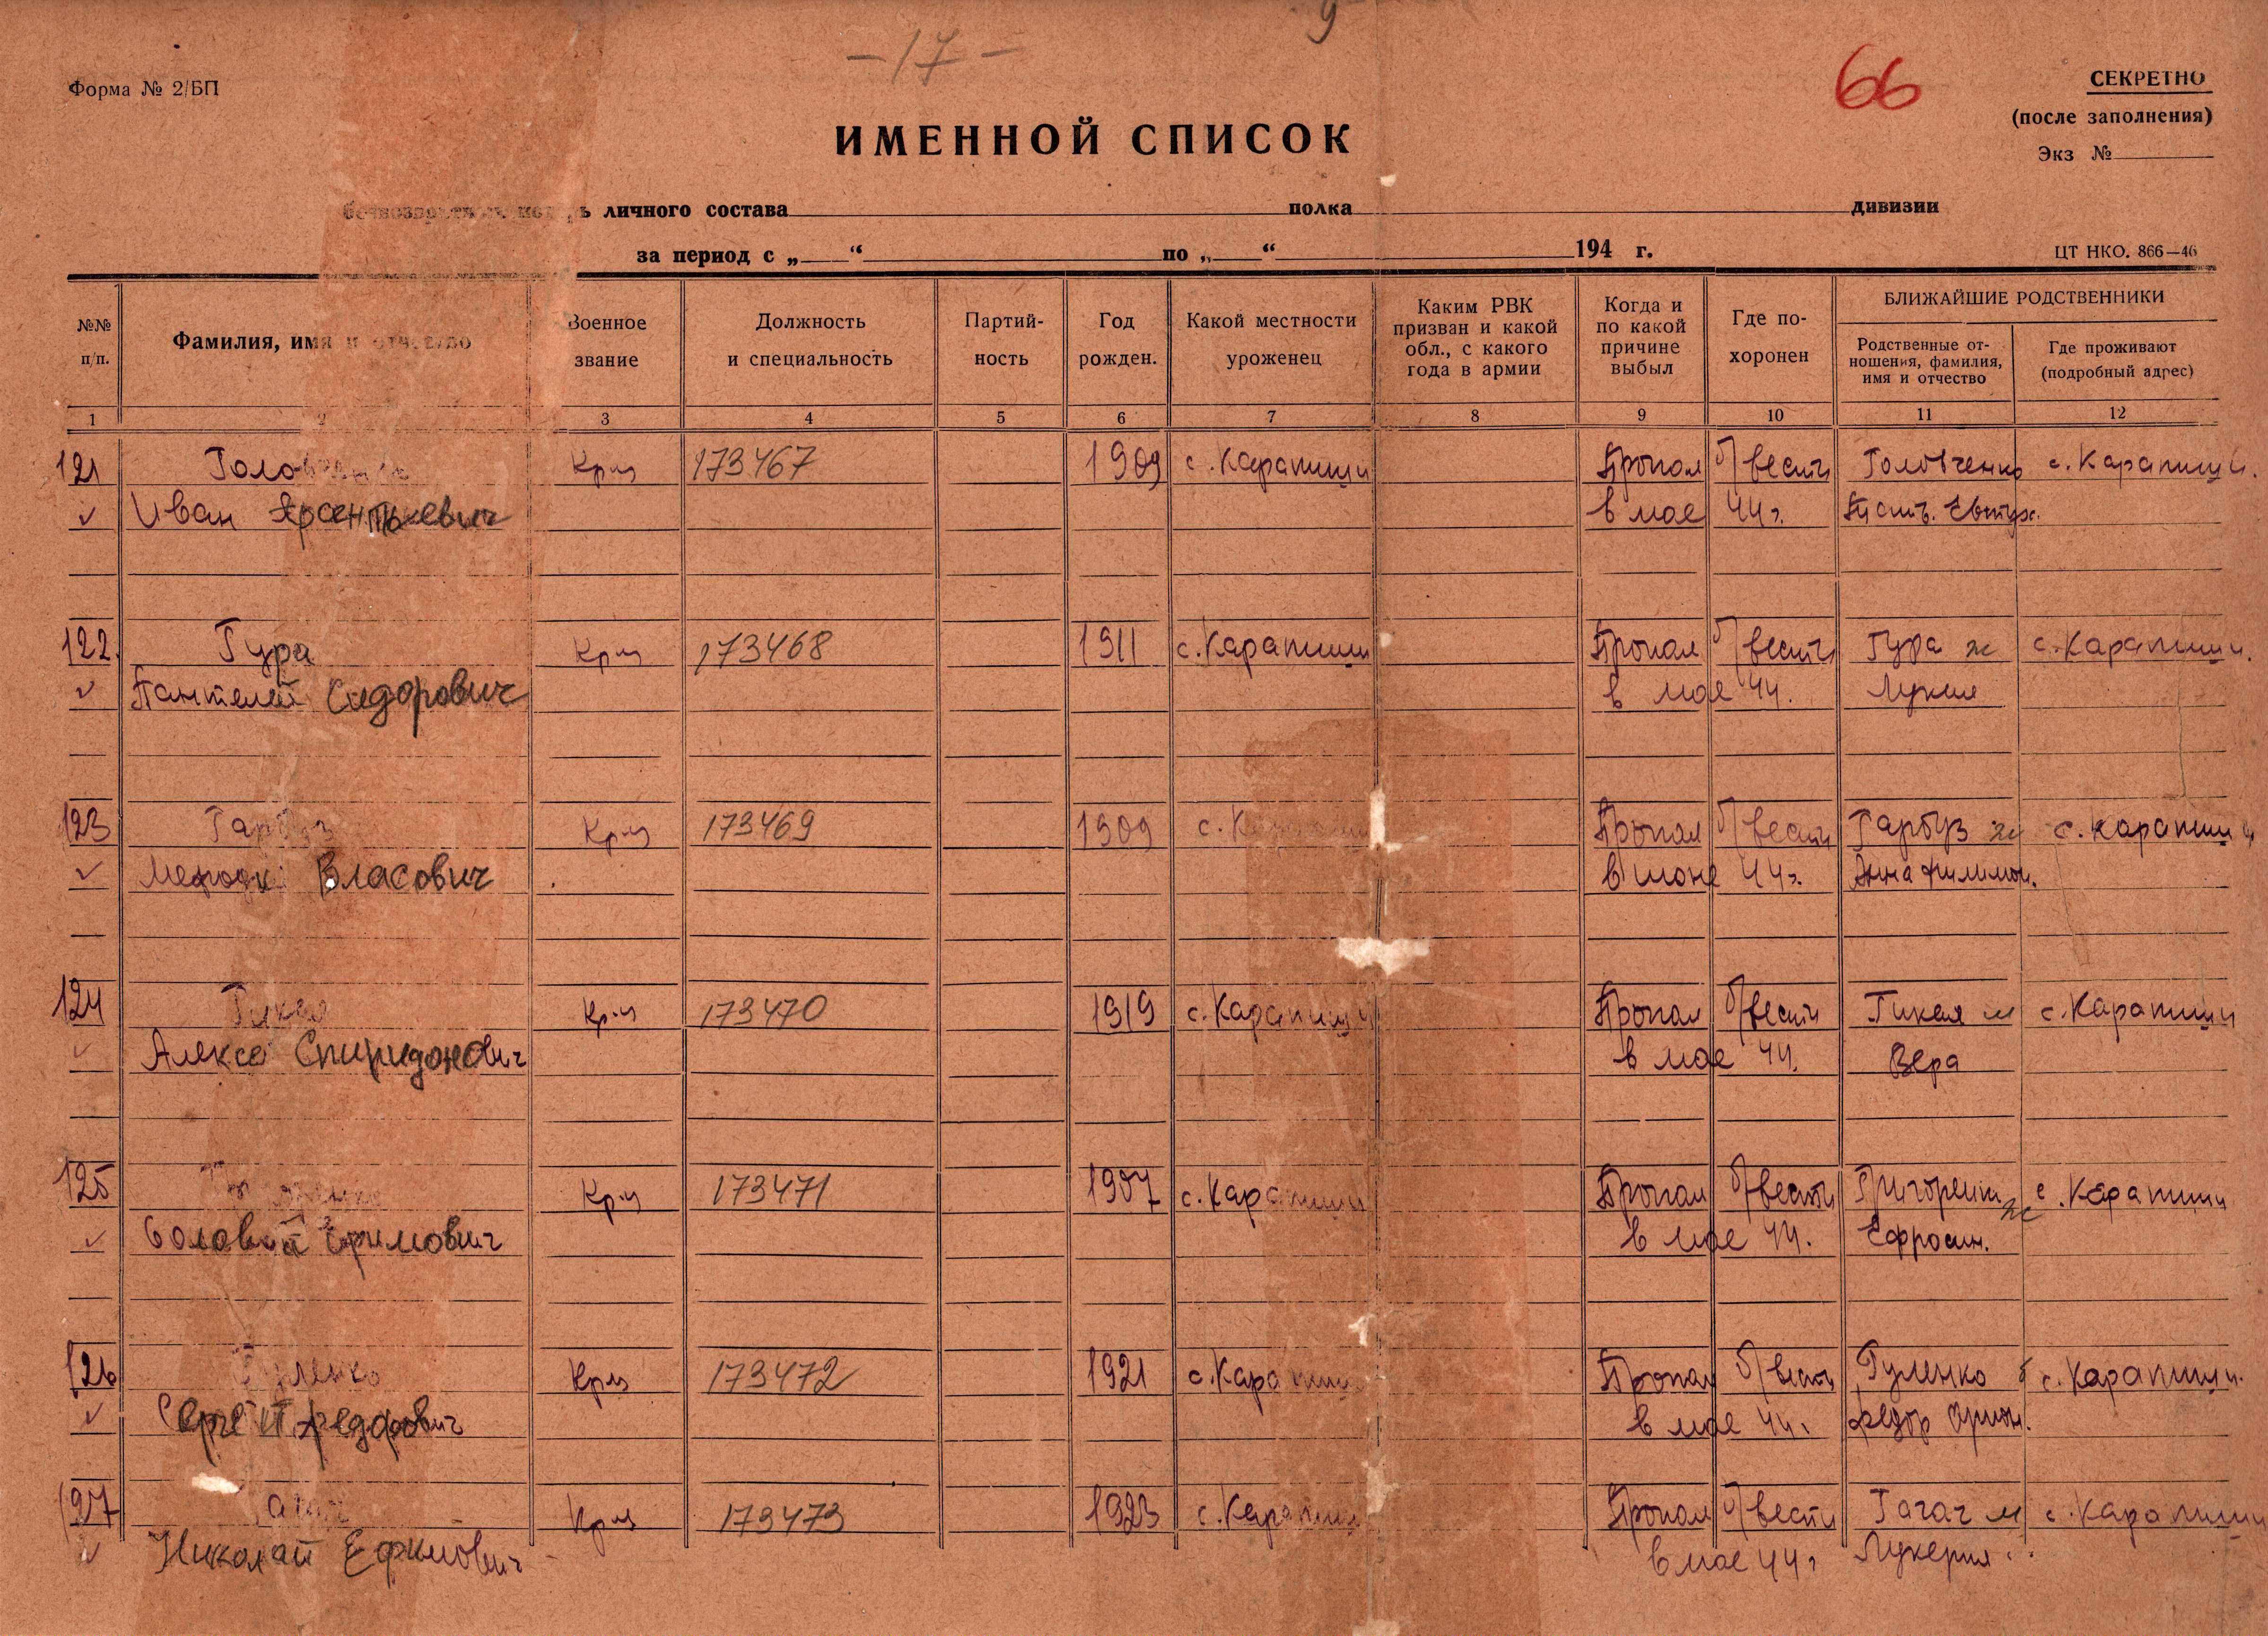 -17-
66
Форма № 2/БП
СЕКРЕТНО
(после заполнения)
Экз №
ИМЕННОЙ СПИСОК
личного состава полка дивизии
за период с „ “ по „ “ 194 г.
ЦТ НКО. 866—46
№№ п/п.
Фамилия, имя и отчество
Военное звание
Должность и специальность
Партий-
ность
Год рожден.
Какой местности уроженец
Каким РВК
призван и какой
обл., с какого
года в армии
Когда и
по какой
причине
выбыл
Где по-
хоронен
БЛИЖАЙШИЕ РОДСТВЕННИКИ
Родственные от-
ношения, фамилия,
имя и отчество
Где проживают
(подробный адрес)
1 3 4 5 6 7 8 9 10 11 12
121 Крц 173467 1909 с. Карапиши Пропал б/вести Головченко с. Карапиши.
Иван Арсентьевич в мае 44г.
122. Гура Крц 173468 1911 с. Карапиши Пропал б/вести Гура ж с. Карапиши.
Пантелей Сидорович в мае 44.
123 Гарбуз Крц 173469 1909 с. Пропал б/вести Гарбуз ж с. Карапиши
Власович в июне 44г. Анна Филимон.
124 Крц 173470 1919 с. Карапиши Пропал б/вести Гикая м с. Карапиши
Алексе Спиридонович в мае 44. Вера
125 Крц 173471 1907 с. Карапиши Пропал б/вести ж с. Карапиши
Ефимович в мае 44. Ефросин.
126 Гуленко Крц 173472 1921 с. Карапиши Пропал б/весть Гуленко б с. Карапиши.
Сергей Федорович в мае 44. Федор
127 Крц 173473 1923 с. Карапиши Пропал б/вести Гагач м с. Карапиши
Николай Ефимович в мае 44г Лукерия